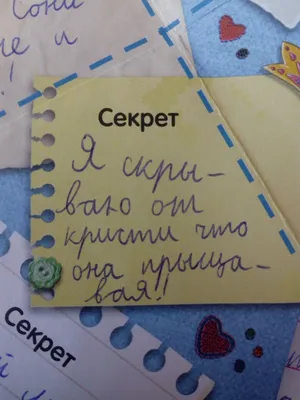 Сони
не и
!
Секрет
Я скры-
ваю от
кристи что
она прыща-
вая!!
Секрет
й